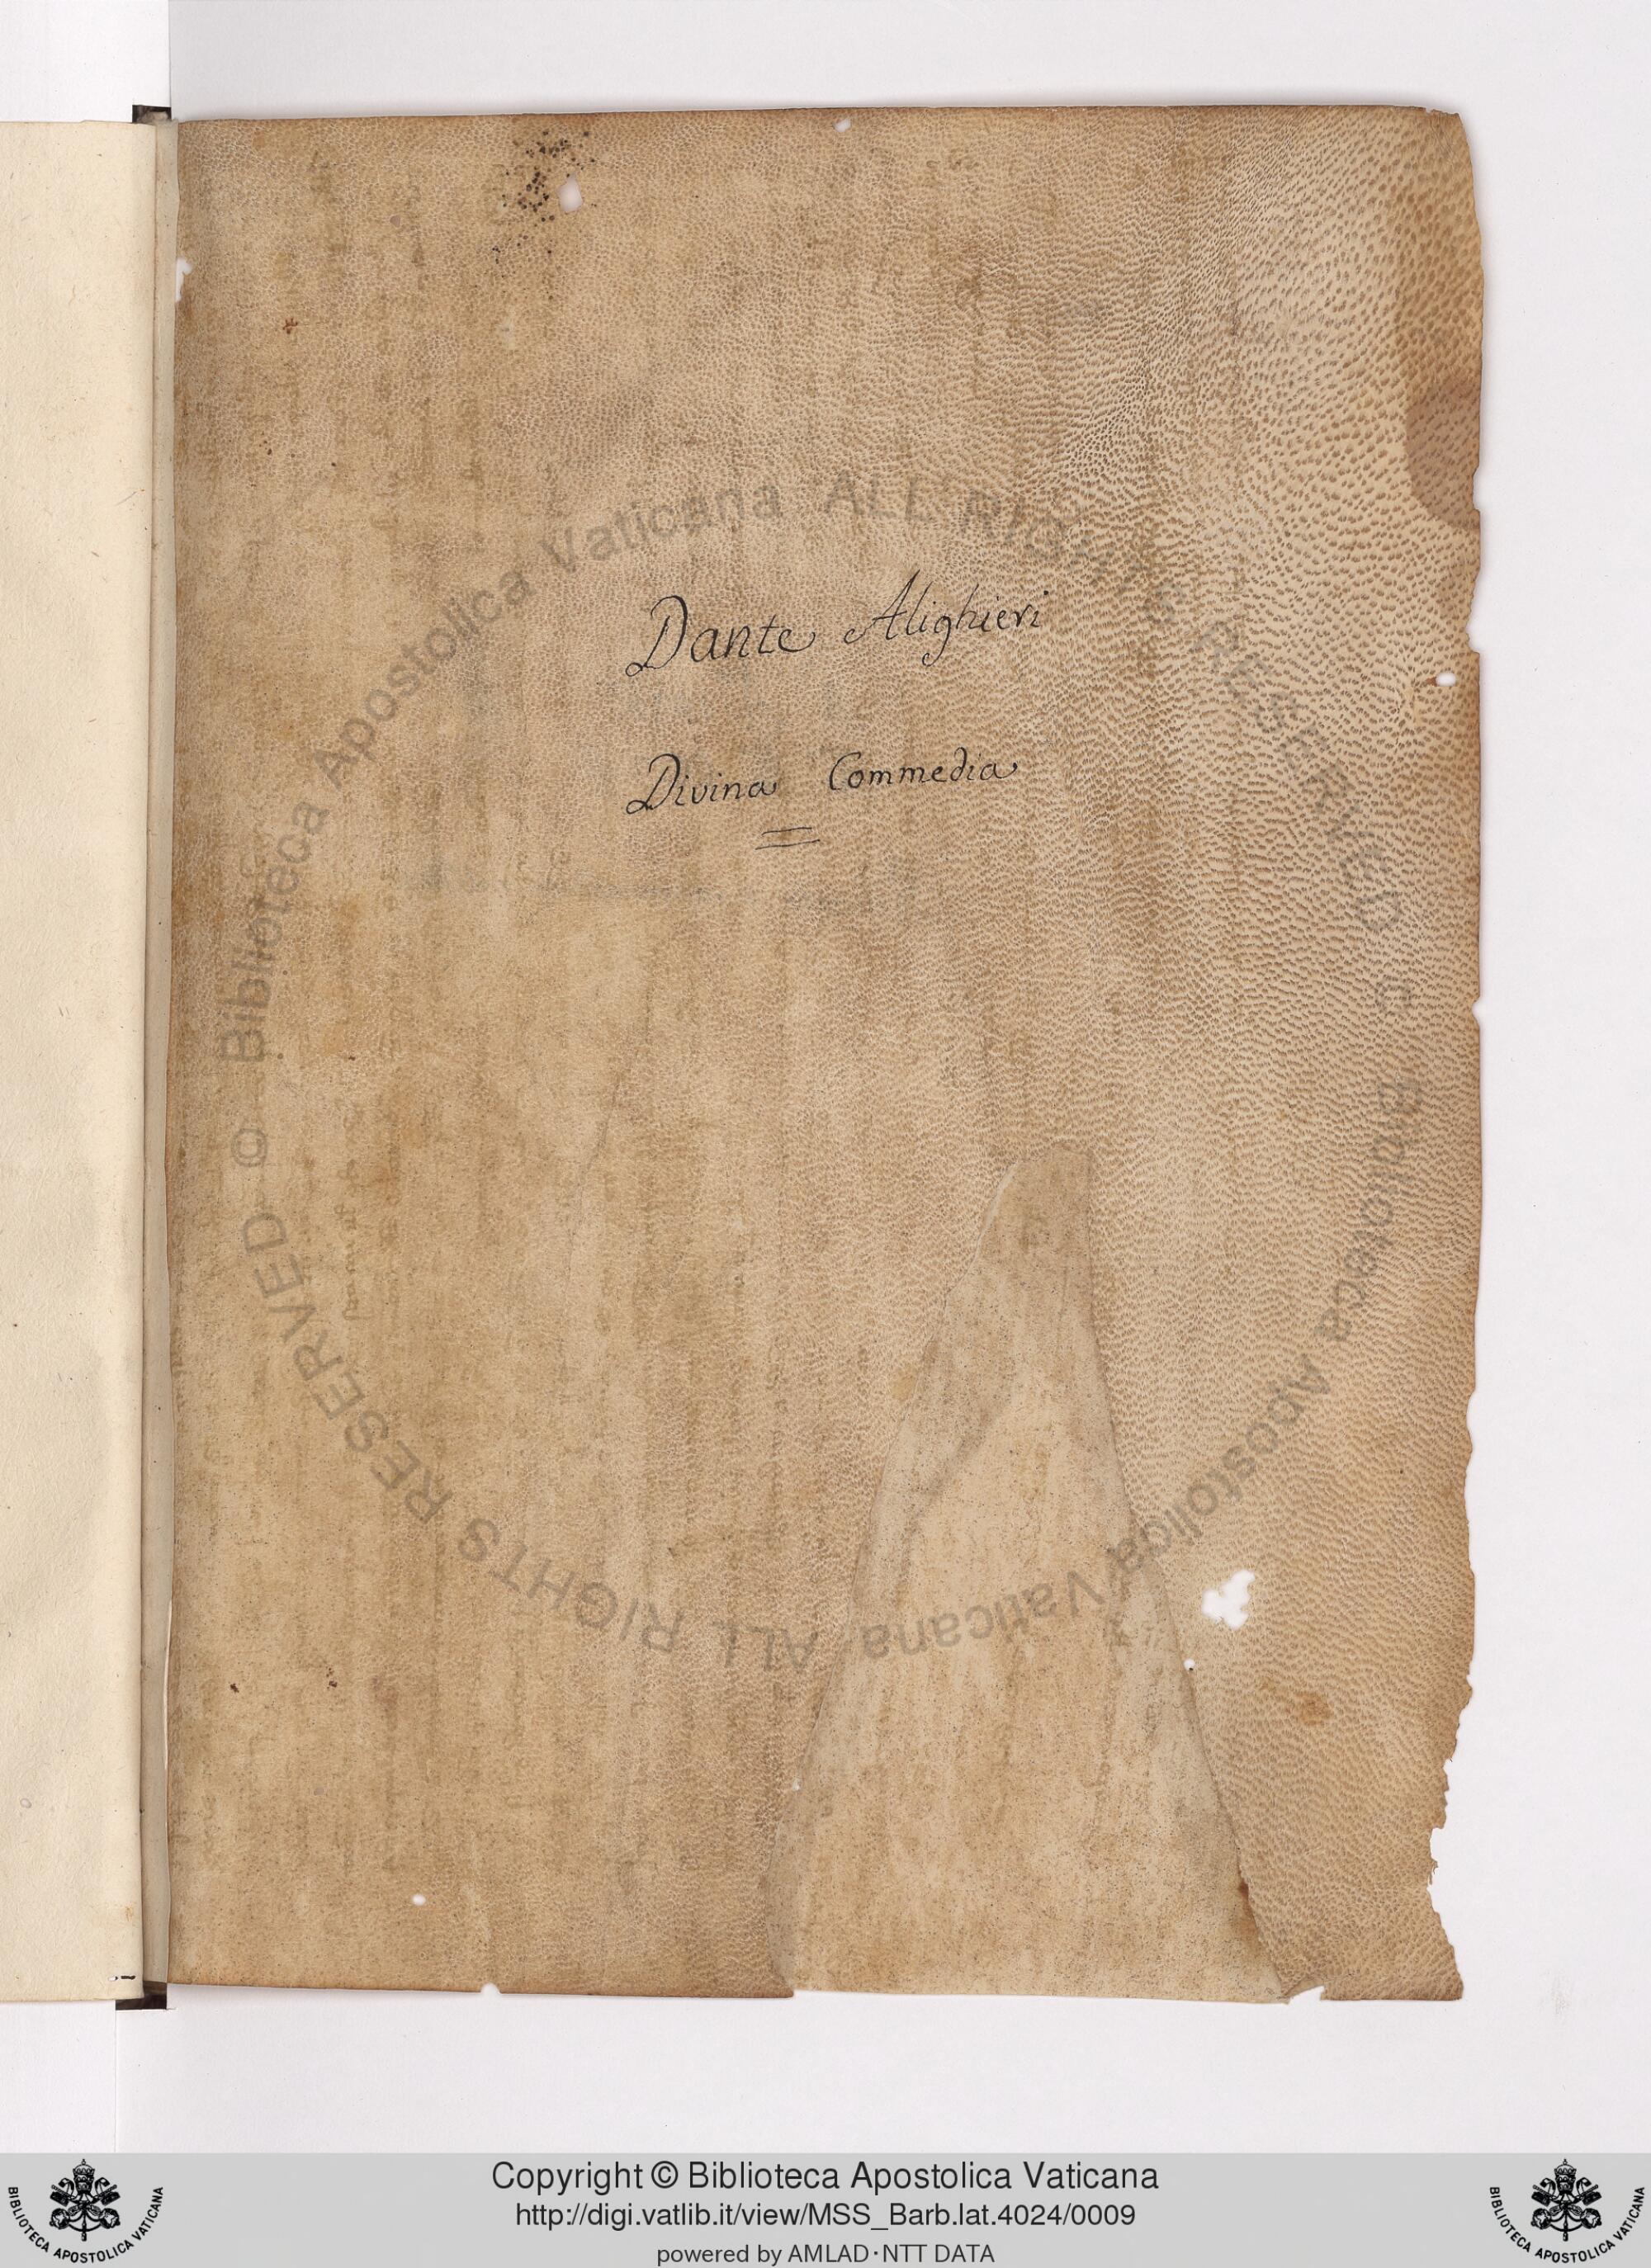 Dante Alighieri
Divina Commedia
© Biblioteca Apostolica Vaticana ALL RIGHTS RESERVED © Biblioteca Apostolica Vaticana ALL RIGHTS RESERVED
Copyright © Biblioteca Apostolica Vaticana
http://digi.vatlib.it/view/MSS_Barb.lat.4024/0009
powered by AMLAD·NTT DATA
BIBLIOTECA APOSTOLICA VATICANA
BIBLIOTECA APOSTOLICA VATICANA